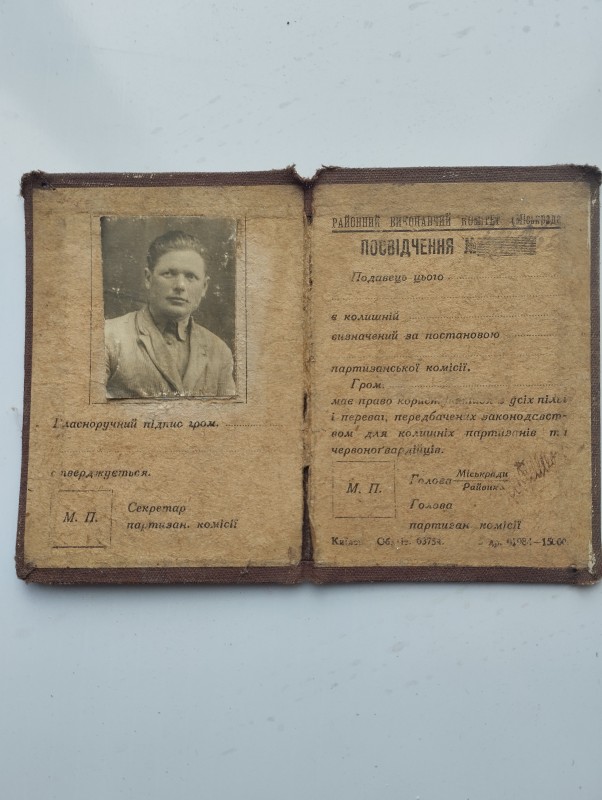 Власноручний підпис гром.
стверджується.
М. П.
Секретар
партизан. комісії
РАЙОННИЙ ВИКОНАВЧИЙ КОМІТЕТ (Міськрада
ПОСВІДЧЕННЯ №
Податель цього
є колишній
визначений за постановою
партизанської комісії.
Гром.
має право з усіх пільг
і переваг, передбачених законодавст-
вом для колишніх партизанів та
червоногвардійців.
М. П.
Голова Міськради
Районк.
Голова
партизан комісії
03754.